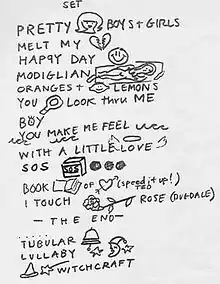 SET
PRETTY BOYS + GIRLS
MELT MY
HAPPY DAY
MODIGLIAN
ORANGES + LEMONS
YOU LOOK thru ME
BOY
YOU MAKE ME FEEL
WITH A LITTLE LOVE
SOS
BOOK OF (speed it up!)
I TOUCH ROSE (DUGDALE)
— THE END —
TUBULAR
LULLABY
WITCHCRAFT